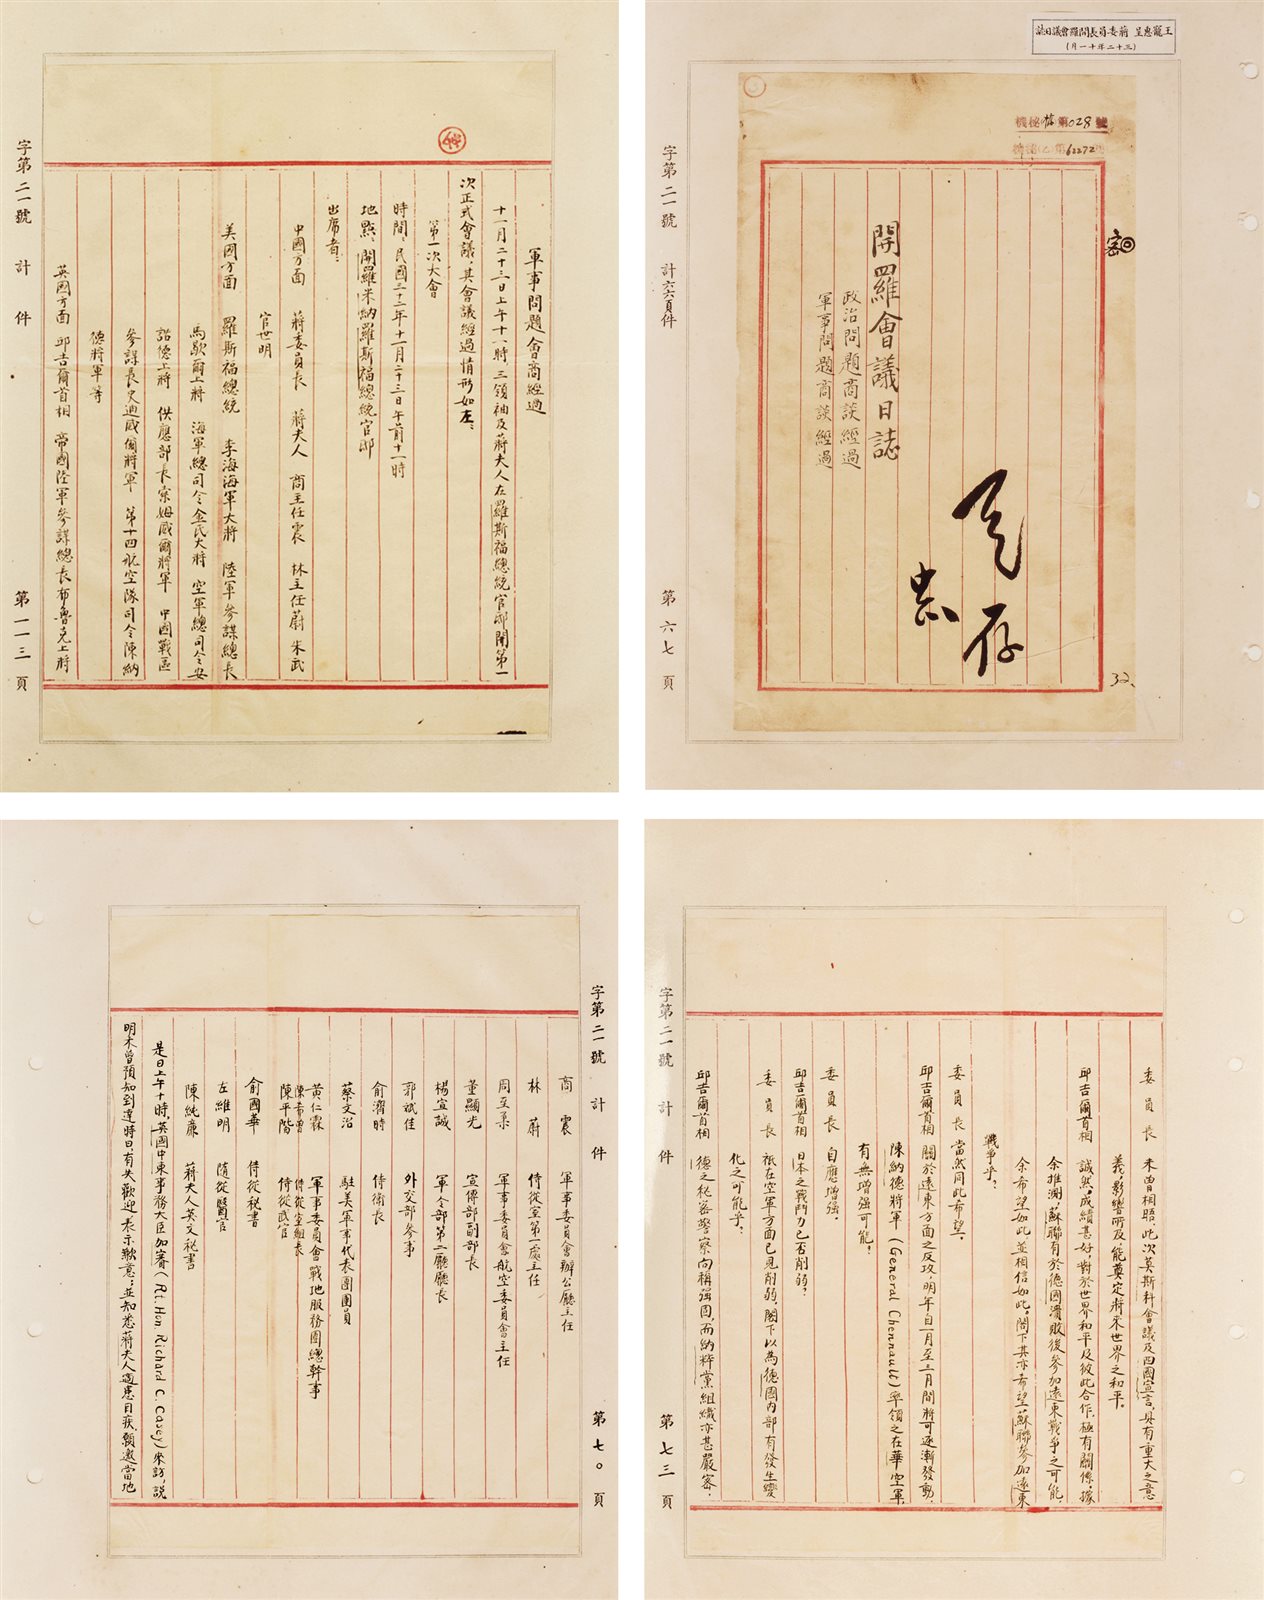 王寵惠呈 蔣委員長開羅會議日誌
(三十二年十一月)
機秘 第028號
第62272
密
開羅會議日誌
政治問題商談經過
軍事問題商談經過
存
32.
字第二一號
計六六頁件
第六七頁
軍事問題會商經過
十一月二十三日上午十一時，三領袖及蔣夫人在羅斯福總統官邸開第一
次正式會議，其會議經過情形如左：
第一次大會
時間、民國三十二年十一月二十三日午前十一時
地點、開羅米納羅斯福總統官邸
出席者：
中國方面 蔣委員長 蔣夫人 商主任震 林主任蔚 朱武
官世明
美國方面 羅斯福總統 李海海軍大將 陸軍參謀總長
馬歇爾上將 海軍總司令金氏大將 空軍總司令安
諾德上將 供應部長索姆威爾將軍 中國戰區
參謀長史迪威爾將軍 第十四航空隊司令陳納
德將軍等
英國方面 邱吉爾首相 帝國陸軍參謀總長布魯克上將
字第二一號
計 件
第一一三頁
委員長 未曾相晤，此次莫斯科會議及四國宣言，具有重大之意
義，影響所及，能奠定將來世界之和平。
邱吉爾首相 誠然，成績甚好，對於世界和平及彼此合作，極有關係，據
余推測，蘇聯有於德國潰敗後參加遠東戰爭之可能，
余希望如此，並相信如此。閣下其亦希望蘇聯參加遠東
戰爭乎？
委員長 當然同此希望。
邱吉爾首相 關於遠東方面之反攻，明年自一月至三月間將可逐漸發動，
陳納德將軍（General Chennault）率領之在華空軍，
有無增強可能？
委員長 自應增強。
邱吉爾首相 日本之戰鬥力已否削弱？
委員長 祇在空軍方面已見削弱，閣下以為德國內部有發生變
化之可能乎？
邱吉爾首相 德之秘密警察向稱強固，而納粹黨組織亦甚嚴密，
字第二一號
計 件
第七三頁
商震 軍事委員會辦公廳主任
林蔚 侍從室第一處主任
周至柔 軍事委員會航空委員會主任
董顯光 宣傳部副部長
楊宣誠 軍令部第二廳廳長
郭斌佳 外交部參事
俞濟時 侍衛長
蔡文治 駐美軍事代表團團員
黃仁霖 軍事委員會戰地服務團總幹事
陳希曾 侍從室組長
陳平階 侍從武官
俞國華 侍從秘書
左維明 隨從醫官
陳純廉 蔣夫人英文秘書
是日上午十時，英國中東事務大臣加審（Rt. Hon Richard C. Casey）來訪，說
明未曾預知到達時日，有失歡迎，表示歉意；並知悉蔣夫人適患目疾，願邀當地
字第二一號
計 件
第七〇頁